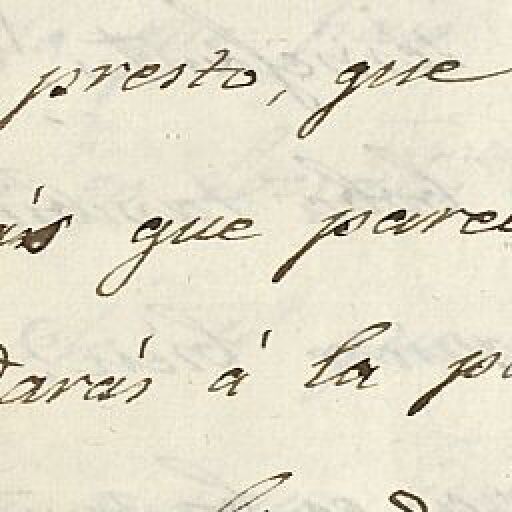 presto, que
ás que parec
darás á la p